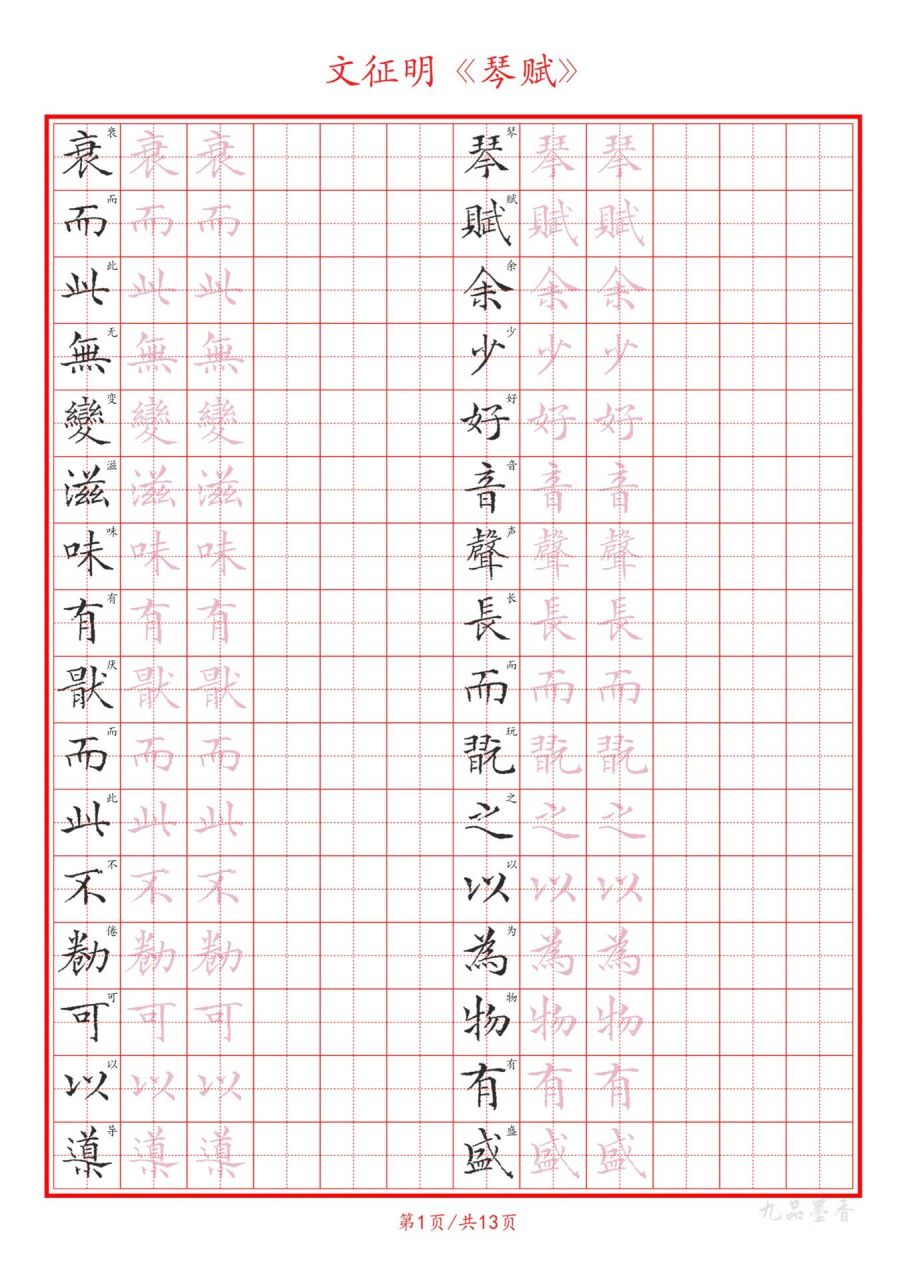 文征明《琴赋》
琴賦余少好音聲長而翫之以為物有盛
琴赋余少好音声长而玩之以为物有盛
琴賦余少好音聲長而翫之以為物有盛
琴賦余少好音聲長而翫之以為物有盛
衰而此無變滋味有猒而此不勌可以導
衰而此无变滋味有厌而此不倦可以导
衰而此無變滋味有猒而此不勌可以導
衰而此無變滋味有猒而此不勌可以導
第1页/共13页
九品墨香